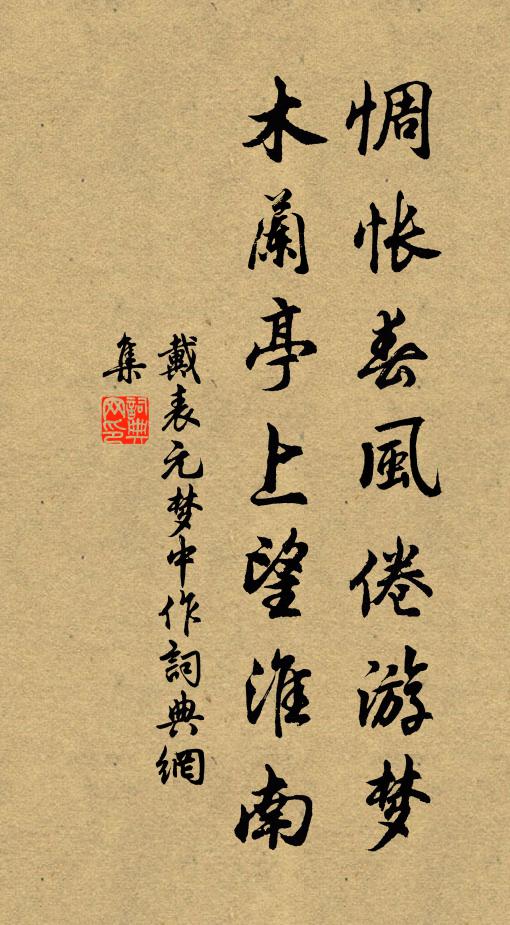 惆怅春風倦游梦
木蘭亭上望淮南
戴表元梦中作詞典網
集
詞典网印